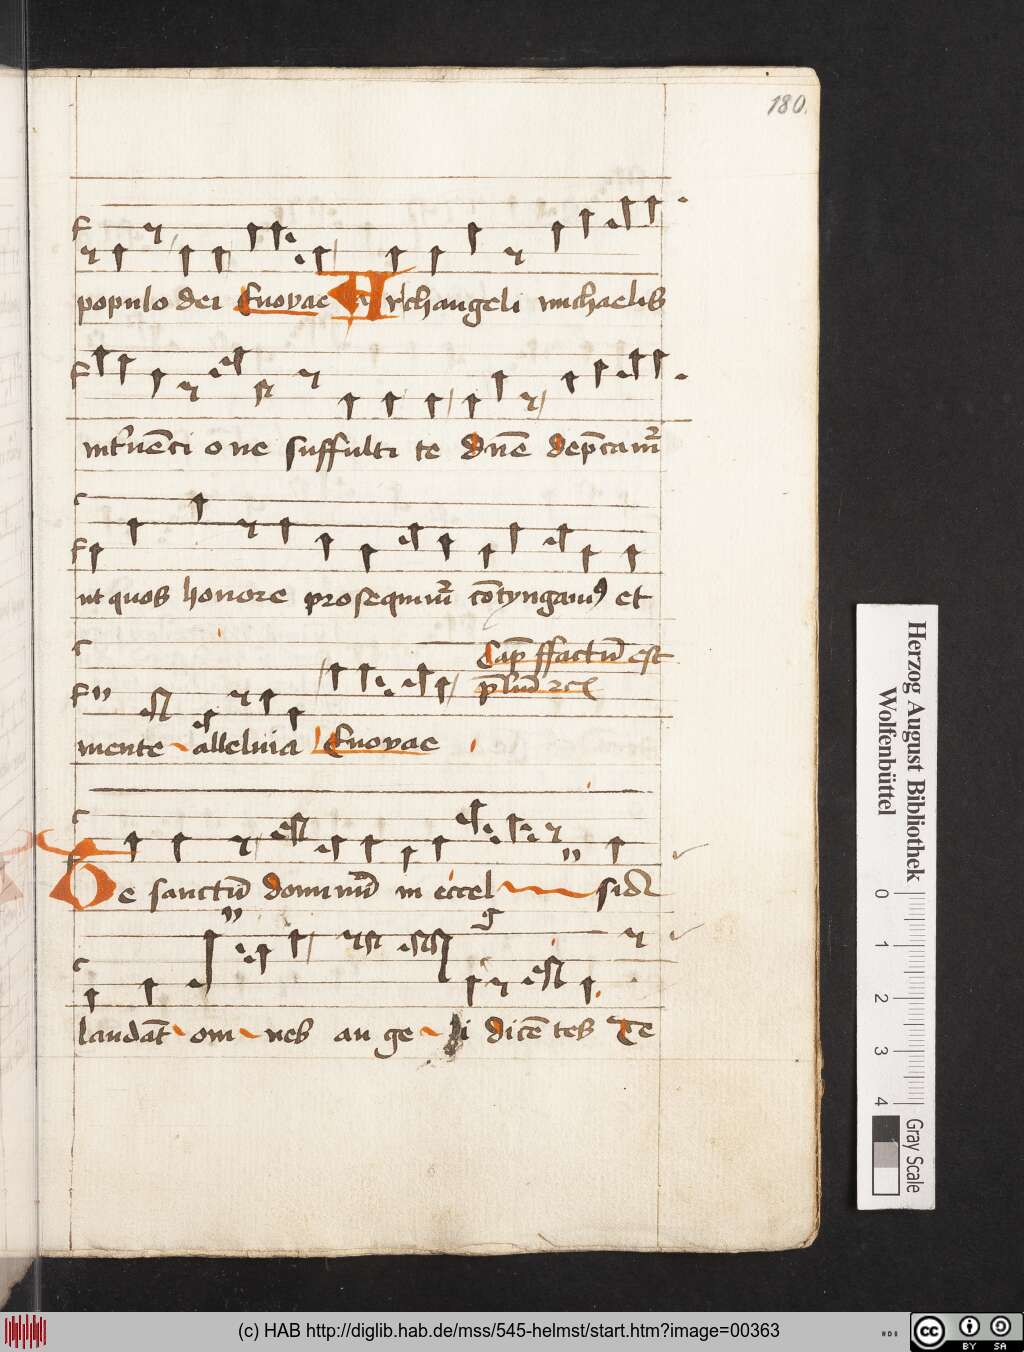 180
populo dei Euovae Archangeli michaelis
int'uēcione suffulti te dn̄e dep̄cam̄
ut quos honore prosequim̄ cōtyngam9 et
Cap̄ ffactū est
p̄liū
mente alleluia Euovae
Te sanctū dominū in eccelsis
laudāt omnes angeli dicētes Te
Herzog August Bibliothek
Wolfenbüttel
0 1 2 3 4
Gray Scale
(c) HAB http://diglib.hab.de/mss/545-helmst/start.htm?image=00363
cc BY SA